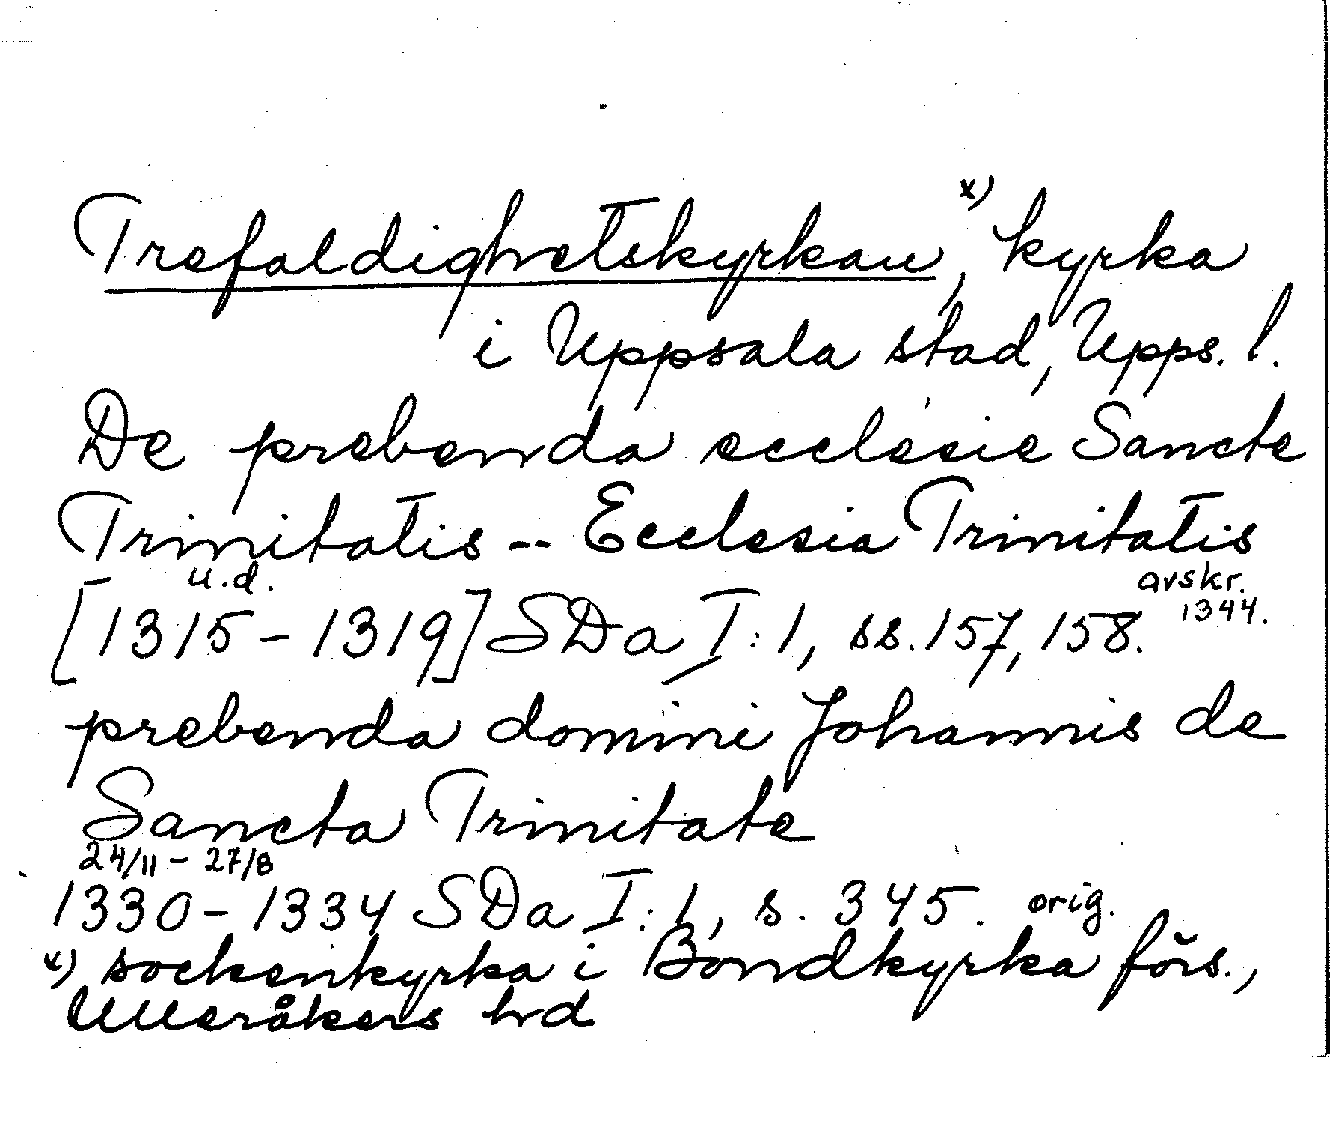 Trefaldighetskyrkan x), kyrka
i Uppsala stad, Upps. l.
De prebenda ecclesie Sancte
Trinitatis -- Ecclesia Trinitatis
u.d. avskr.
[1315-1319] SDa I:1, ss. 157, 158. 1344.
prebenda domini Johannis de
Sancta Trinitate
24/11 - 27/8
1330-1334 SDa I:1, s. 345. orig.
x) sockenkyrka i Bondkyrka förs.,
Ulleråkers hd